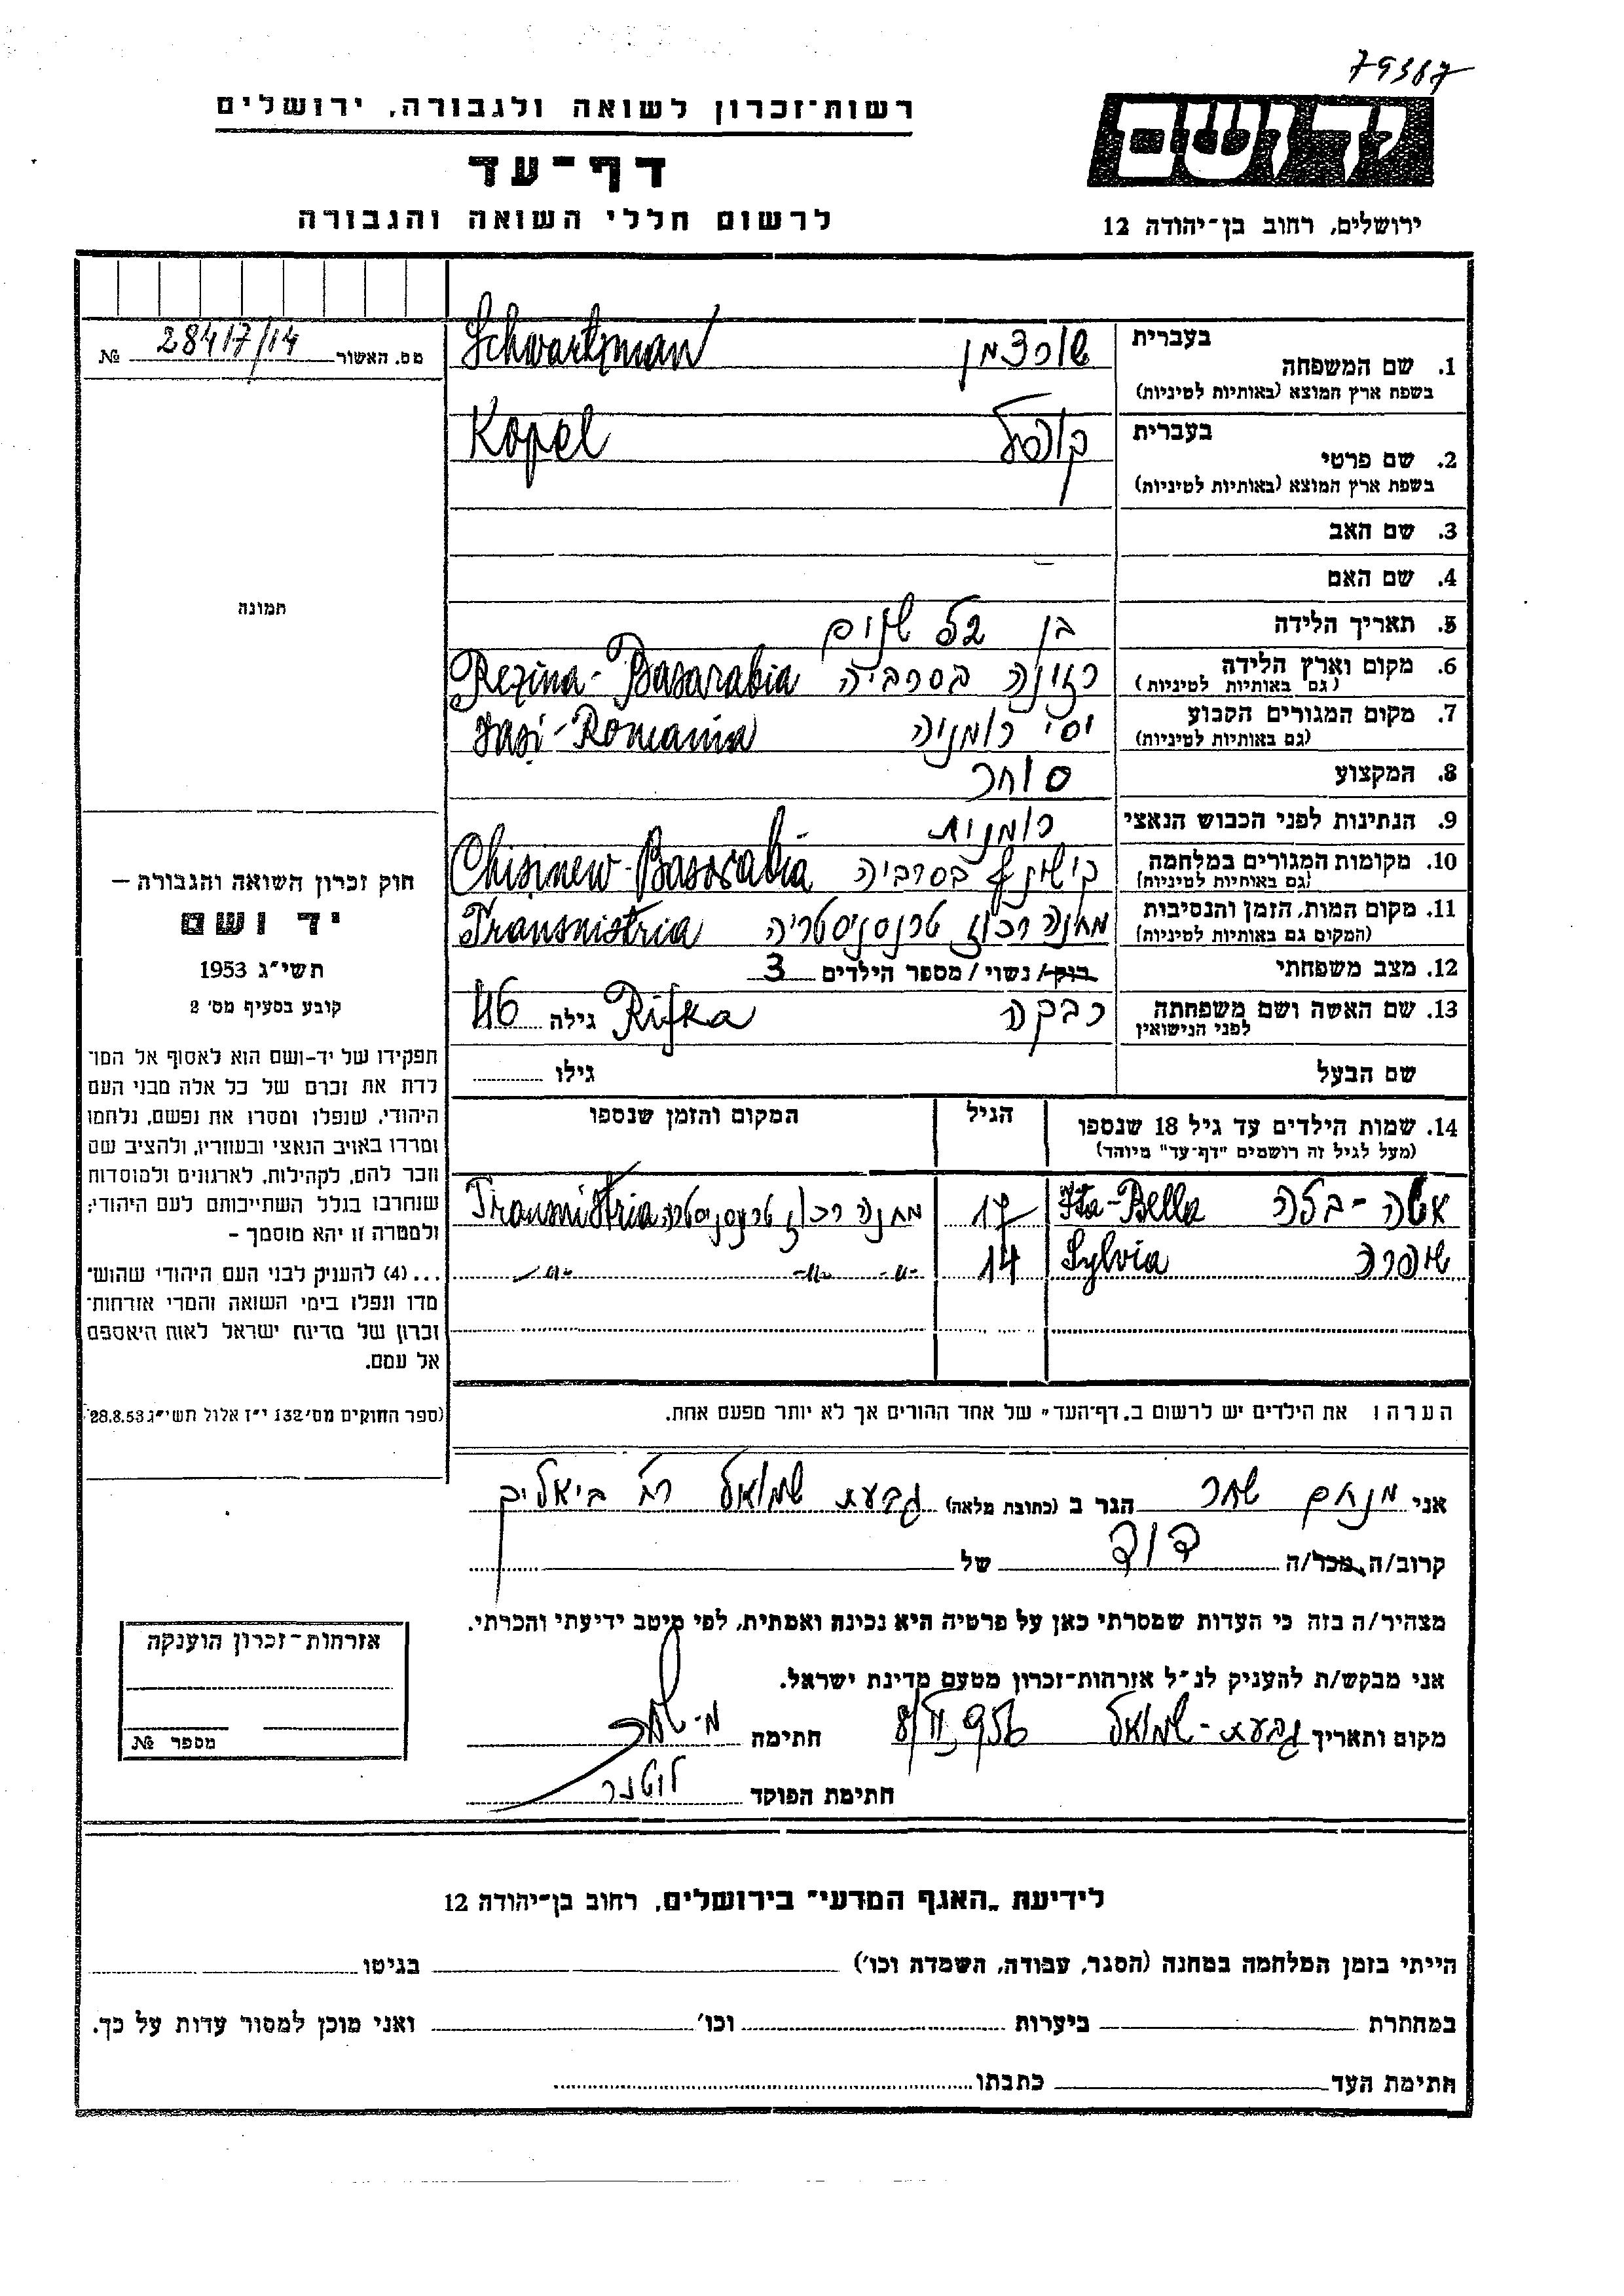 79387
רשות־זכרון לשואה ולגבורה, ירושלים
דף־עד
לרשום חללי השואה והגבורה
יד ושם
ירושלים, רחוב בן־יהודה 12
מס. האשור 28417/14 №
תמונה
חוק זכרון השואה והגבורה —
יד ושם
תשי״ג 1953
קובע בסעיף מס׳ 2
תפקידו של יד-ושם הוא לאסוף אל המו־
לדת את זכרם של כל אלה מבני העם
היהודי, שנפלו ומסרו את נפשם, נלחמו
ומרדו באויב הנאצי ובעוזריו, ולהציב שם
וזכר להם, לקהילות, לארגונים ולמוסדות
שנחרבו בגלל השתייכותם לעם היהודי;
ולמטרה זו יהא מוסמך –
...(4) להעניק לבני העם היהודי שהוש־
מדו ונפלו בימי השואה והמרי אזרחות־
זכרון של מדינת ישראל לאות היאספם
אל עמם.
(ספר החוקים מס׳ 132 י״ז אלול תשי״ג 28.8.53)
1. שם המשפחה בעברית שורצמן Schwartzman
בשפת ארץ המוצא (באותיות לטיניות)
2. שם פרטי בעברית קופל Kopel
בשפת ארץ המוצא (באותיות לטיניות)
3. שם האב
4. שם האם
5. תאריך הלידה בן 52 שנים
6. מקום וארץ הלידה רזינה בסרביה Rezina - Basarabia
(גם באותיות לטיניות)
7. מקום המגורים הקבוע יסי רומניה Iasi - Romania
(גם באותיות לטיניות)
8. המקצוע סוחר
9. הנתינות לפני הכבוש הנאצי רומנית
10. מקומות המגורים במלחמה קישינף בסרביה Chisinew - Basarabia
(גם באותיות לטיניות)
11. מקום המות, הזמן והנסיבות מחנה רכוז טרנסניסטריה Transnistria
(המקום גם באותיות לטיניות)
12. מצב משפחתי רווק / נשוי / מספר הילדים 3
13. שם האשה ושם משפחתה רבקה Rifka גילה 46
לפני הנישואין
שם הבעל גילו
14. שמות הילדים עד גיל 18 שנספו הגיל המקום והזמן שנספו
(מעל לגיל זה רושמים "דף-עד" מיוחד)
אטה - בלה Ita-Bella 17 מחנה רכוז טרנסניסטריה Transnistria
שפרה Sylvia 14 -"- -"- -"-
הערה: את הילדים יש לרשום ב„דף־העד״ של אחד ההורים אך לא יותר מפעם אחת.
אני מנחם שחר הגר ב (כתובת מלאה) גבעת שמואל רח׳ ביאליק
קרוב/ה מכר/ה דוד של
מצהיר/ה בזה כי העדות שמסרתי כאן על פרטיה היא נכונה ואמתית, לפי מיטב ידיעתי והכרתי.
אני מבקש/ת להעניק לנ״ל אזרחות־זכרון מטעם מדינת ישראל.
מקום ותאריך גבעת-שמואל 956 חתימה מ. שחר
חתימת הפוקד
אזרחות־זכרון הוענקה
מספר №
לידיעת „האגף המדעי״ בירושלים, רחוב בן־יהודה 12
הייתי בזמן המלחמה במחנה (הסגר, עבודה, השמדה וכו׳) בגיטו
במחתרת ביערות וכו׳ ואני מוכן למסור עדות על כך.
חתימת העד כתבתו